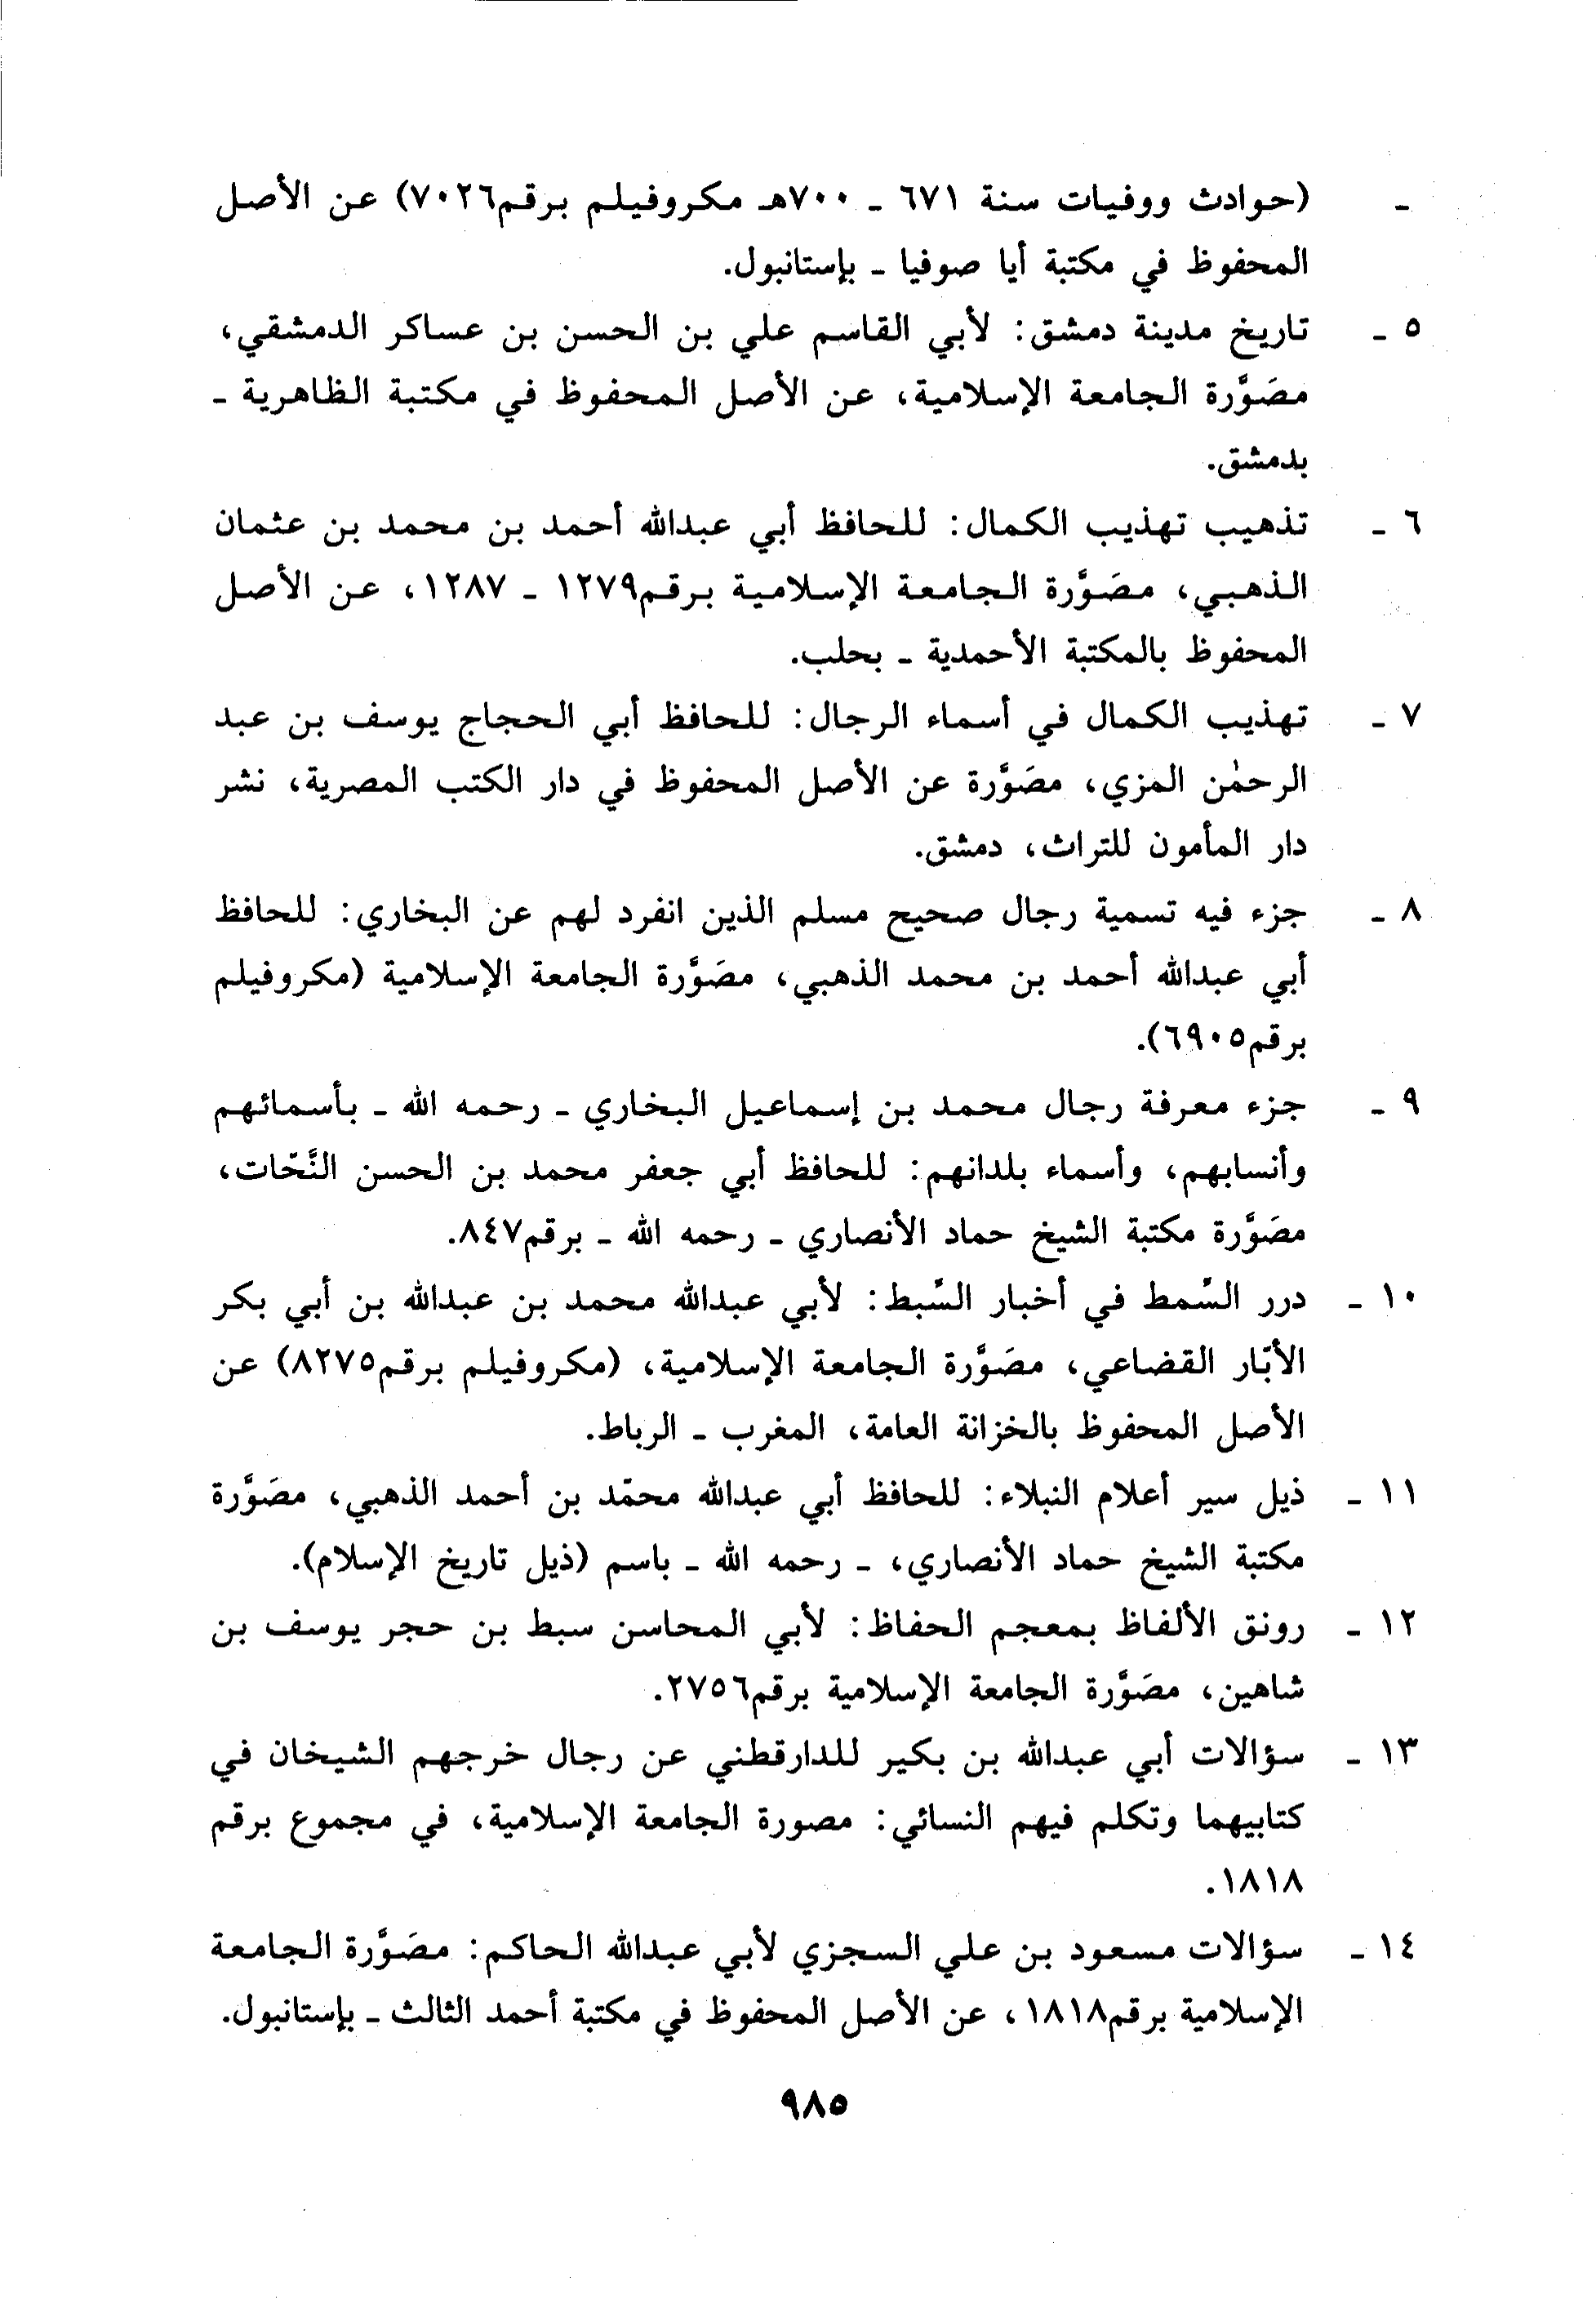 ـ (حوادث ووفيات سنة ٦٧١ ـ ٧٠٠هـ مكروفيلم برقم٧٠٢٦) عن الأصل
المحفوظ في مكتبة أيا صوفيا ـ بإستانبول.
٥ ـ تاريخ مدينة دمشق: لأبي القاسم علي بن الحسن بن عساكر الدمشقي،
مصَوَّرة الجامعة الإسلامية، عن الأصل المحفوظ في مكتبة الظاهرية ـ
بدمشق.
٦ ـ تذهيب تهذيب الكمال: للحافظ أبي عبدالله أحمد بن محمد بن عثمان
الذهبي، مصَوَّرة الجامعة الإسلامية برقم١٢٧٩ ـ ١٢٨٧، عن الأصل
المحفوظ بالمكتبة الأحمدية ـ بحلب.
٧ ـ تهذيب الكمال في أسماء الرجال: للحافظ أبي الحجاج يوسف بن عبد
الرحمٰن المزي، مصَوَّرة عن الأصل المحفوظ في دار الكتب المصرية، نشر
دار المأمون للتراث، دمشق.
٨ ـ جزء فيه تسمية رجال صحيح مسلم الذين انفرد لهم عن البخاري: للحافظ
أبي عبدالله أحمد بن محمد الذهبي، مصَوَّرة الجامعة الإسلامية (مكروفيلم
برقم٦٩٠٥).
٩ ـ جزء معرفة رجال محمد بن إسماعيل البخاري ـ رحمه الله ـ بأسمائهم
وأنسابهم، وأسماء بلدانهم: للحافظ أبي جعفر محمد بن الحسن النَّحّات،
مصَوَّرة مكتبة الشيخ حماد الأنصاري ـ رحمه الله ـ برقم٨٤٧.
١٠ ـ درر السِّمط في أخبار السِّبط: لأبي عبدالله محمد بن عبدالله بن أبي بكر
الأبّار القضاعي، مصَوَّرة الجامعة الإسلامية، (مكروفيلم برقم٨٢٧٥) عن
الأصل المحفوظ بالخزانة العامة، المغرب ـ الرباط.
١١ ـ ذيل سير أعلام النبلاء: للحافظ أبي عبدالله محمّد بن أحمد الذهبي، مصَوَّرة
مكتبة الشيخ حماد الأنصاري، ـ رحمه الله ـ باسم (ذيل تاريخ الإسلام).
١٢ ـ رونق الألفاظ بمعجم الحفاظ: لأبي المحاسن سبط بن حجر يوسف بن
شاهين، مصَوَّرة الجامعة الإسلامية برقم٢٧٥٦.
١٣ ـ سؤالات أبي عبدالله بن بكير للدارقطني عن رجال خرجهم الشيخان في
كتابيهما وتكلم فيهم النسائي: مصورة الجامعة الإسلامية، في مجموع برقم
١٨١٨.
١٤ ـ سؤالات مسعود بن علي السجزي لأبي عبدالله الحاكم: مصَوَّرة الجامعة
الإسلامية برقم١٨١٨، عن الأصل المحفوظ في مكتبة أحمد الثالث ـ بإستانبول.
٩٨٥